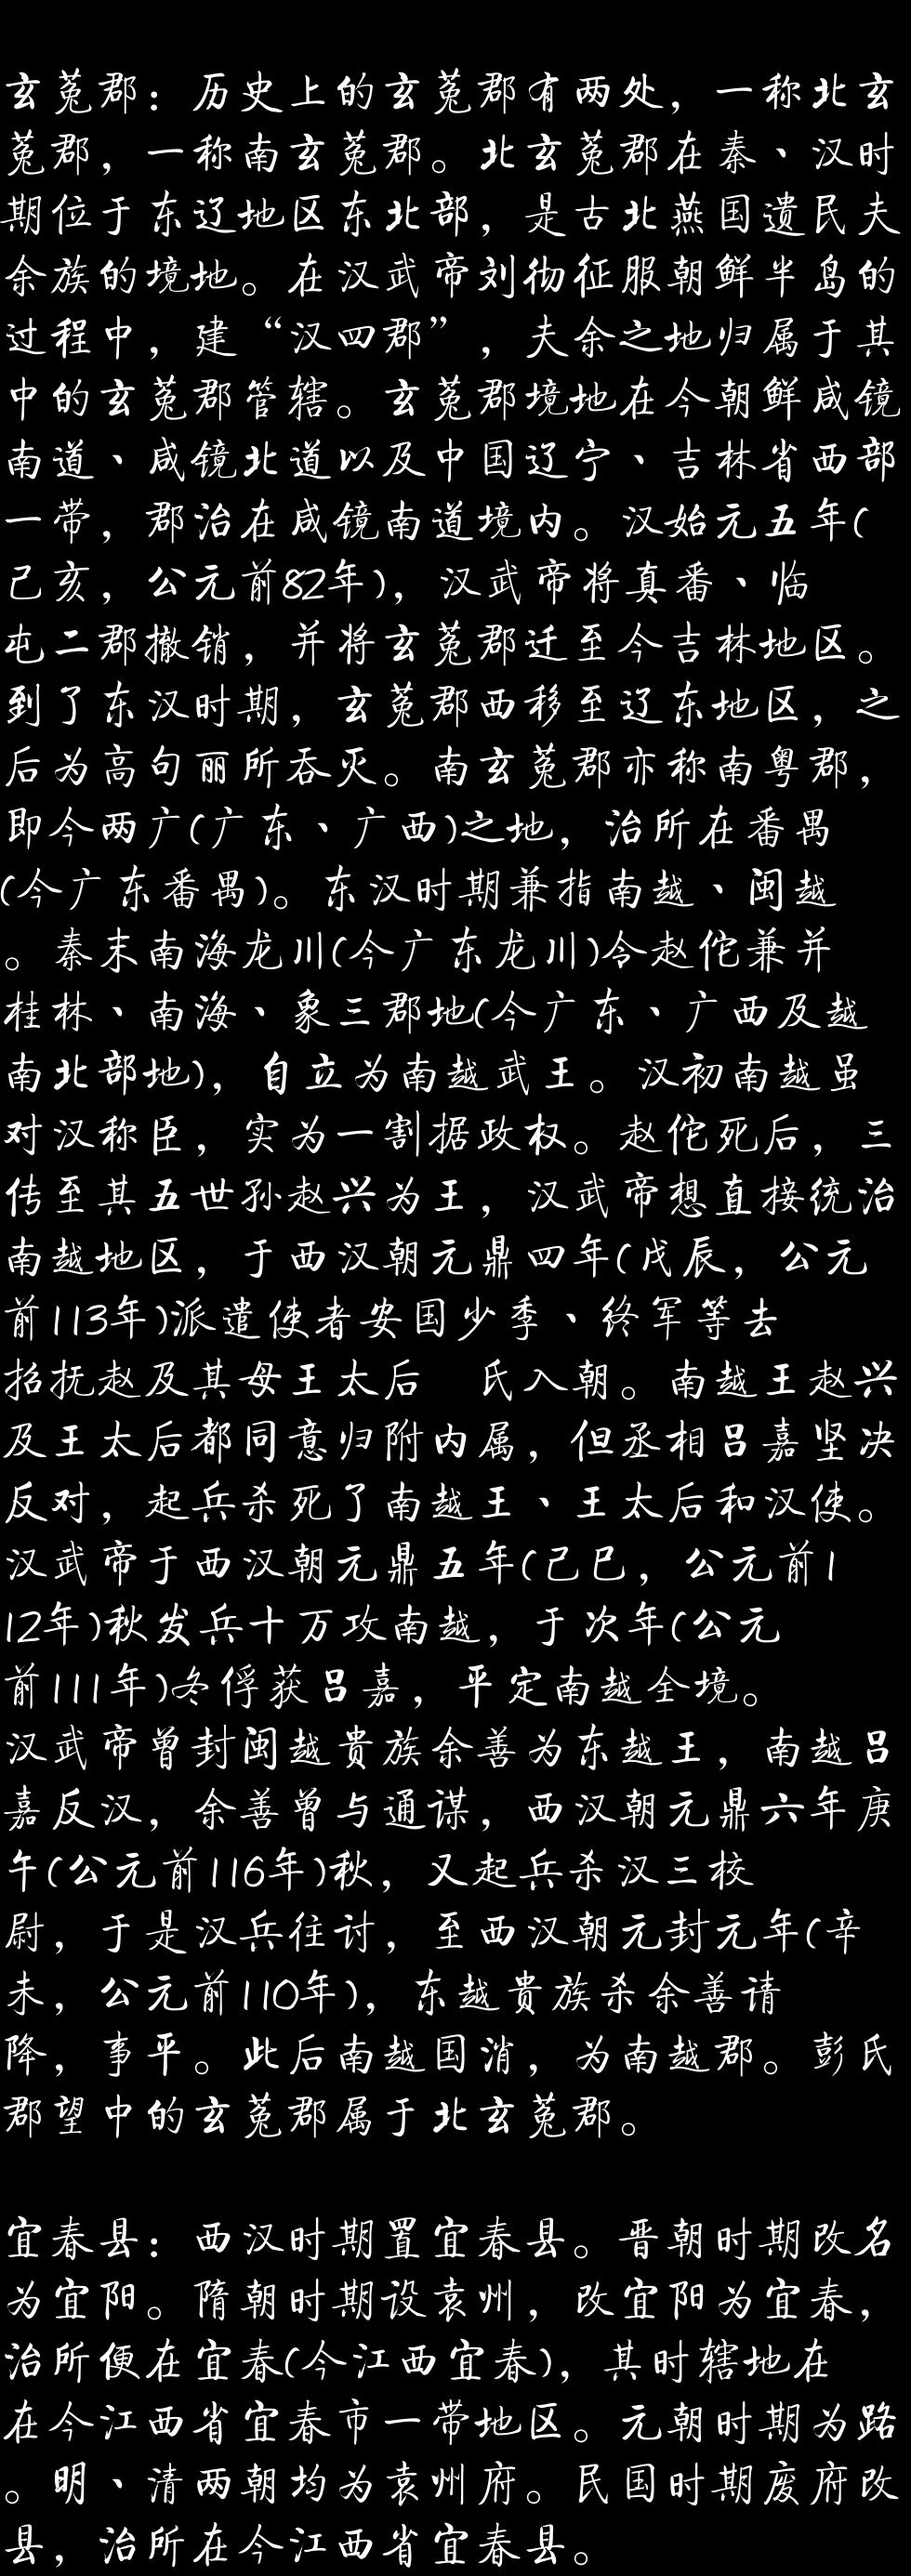 玄菟郡：历史上的玄菟郡有两处，一称北玄
菟郡，一称南玄菟郡。北玄菟郡在秦、汉时
期位于东辽地区东北部，是古北燕国遗民夫
余族的境地。在汉武帝刘彻征服朝鲜半岛的
过程中，建“汉四郡”，夫余之地归属于其
中的玄菟郡管辖。玄菟郡境地在今朝鲜咸镜
南道、咸镜北道以及中国辽宁、吉林省西部
一带，郡治在咸镜南道境内。汉始元五年(
己亥，公元前82年)，汉武帝将真番、临
屯二郡撤销，并将玄菟郡迁至今吉林地区。
到了东汉时期，玄菟郡西移至辽东地区，之
后为高句丽所吞灭。南玄菟郡亦称南粤郡，
即今两广(广东、广西)之地，治所在番禺
(今广东番禺)。东汉时期兼指南越、闽越
。秦末南海龙川(今广东龙川)令赵佗兼并
桂林、南海、象三郡地(今广东、广西及越
南北部地)，自立为南越武王。汉初南越虽
对汉称臣，实为一割据政权。赵佗死后，三
传至其五世孙赵兴为王，汉武帝想直接统治
南越地区，于西汉朝元鼎四年(戊辰，公元
前113年)派遣使者安国少季、终军等去
招抚赵及其母王太后　氏入朝。南越王赵兴
及王太后都同意归附内属，但丞相吕嘉坚决
反对，起兵杀死了南越王、王太后和汉使。
汉武帝于西汉朝元鼎五年(己巳，公元前1
12年)秋发兵十万攻南越，于次年(公元
前111年)冬俘获吕嘉，平定南越全境。
汉武帝曾封闽越贵族余善为东越王，南越吕
嘉反汉，余善曾与通谋，西汉朝元鼎六年庚
午(公元前116年)秋，又起兵杀汉三校
尉，于是汉兵往讨，至西汉朝元封元年(辛
未，公元前110年)，东越贵族杀余善请
降，事平。此后南越国消，为南越郡。彭氏
郡望中的玄菟郡属于北玄菟郡。
宜春县：西汉时期置宜春县。晋朝时期改名
为宜阳。隋朝时期设袁州，改宜阳为宜春，
治所便在宜春(今江西宜春)，其时辖地在
在今江西省宜春市一带地区。元朝时期为路
。明、清两朝均为袁州府。民国时期废府改
县，治所在今江西省宜春县。